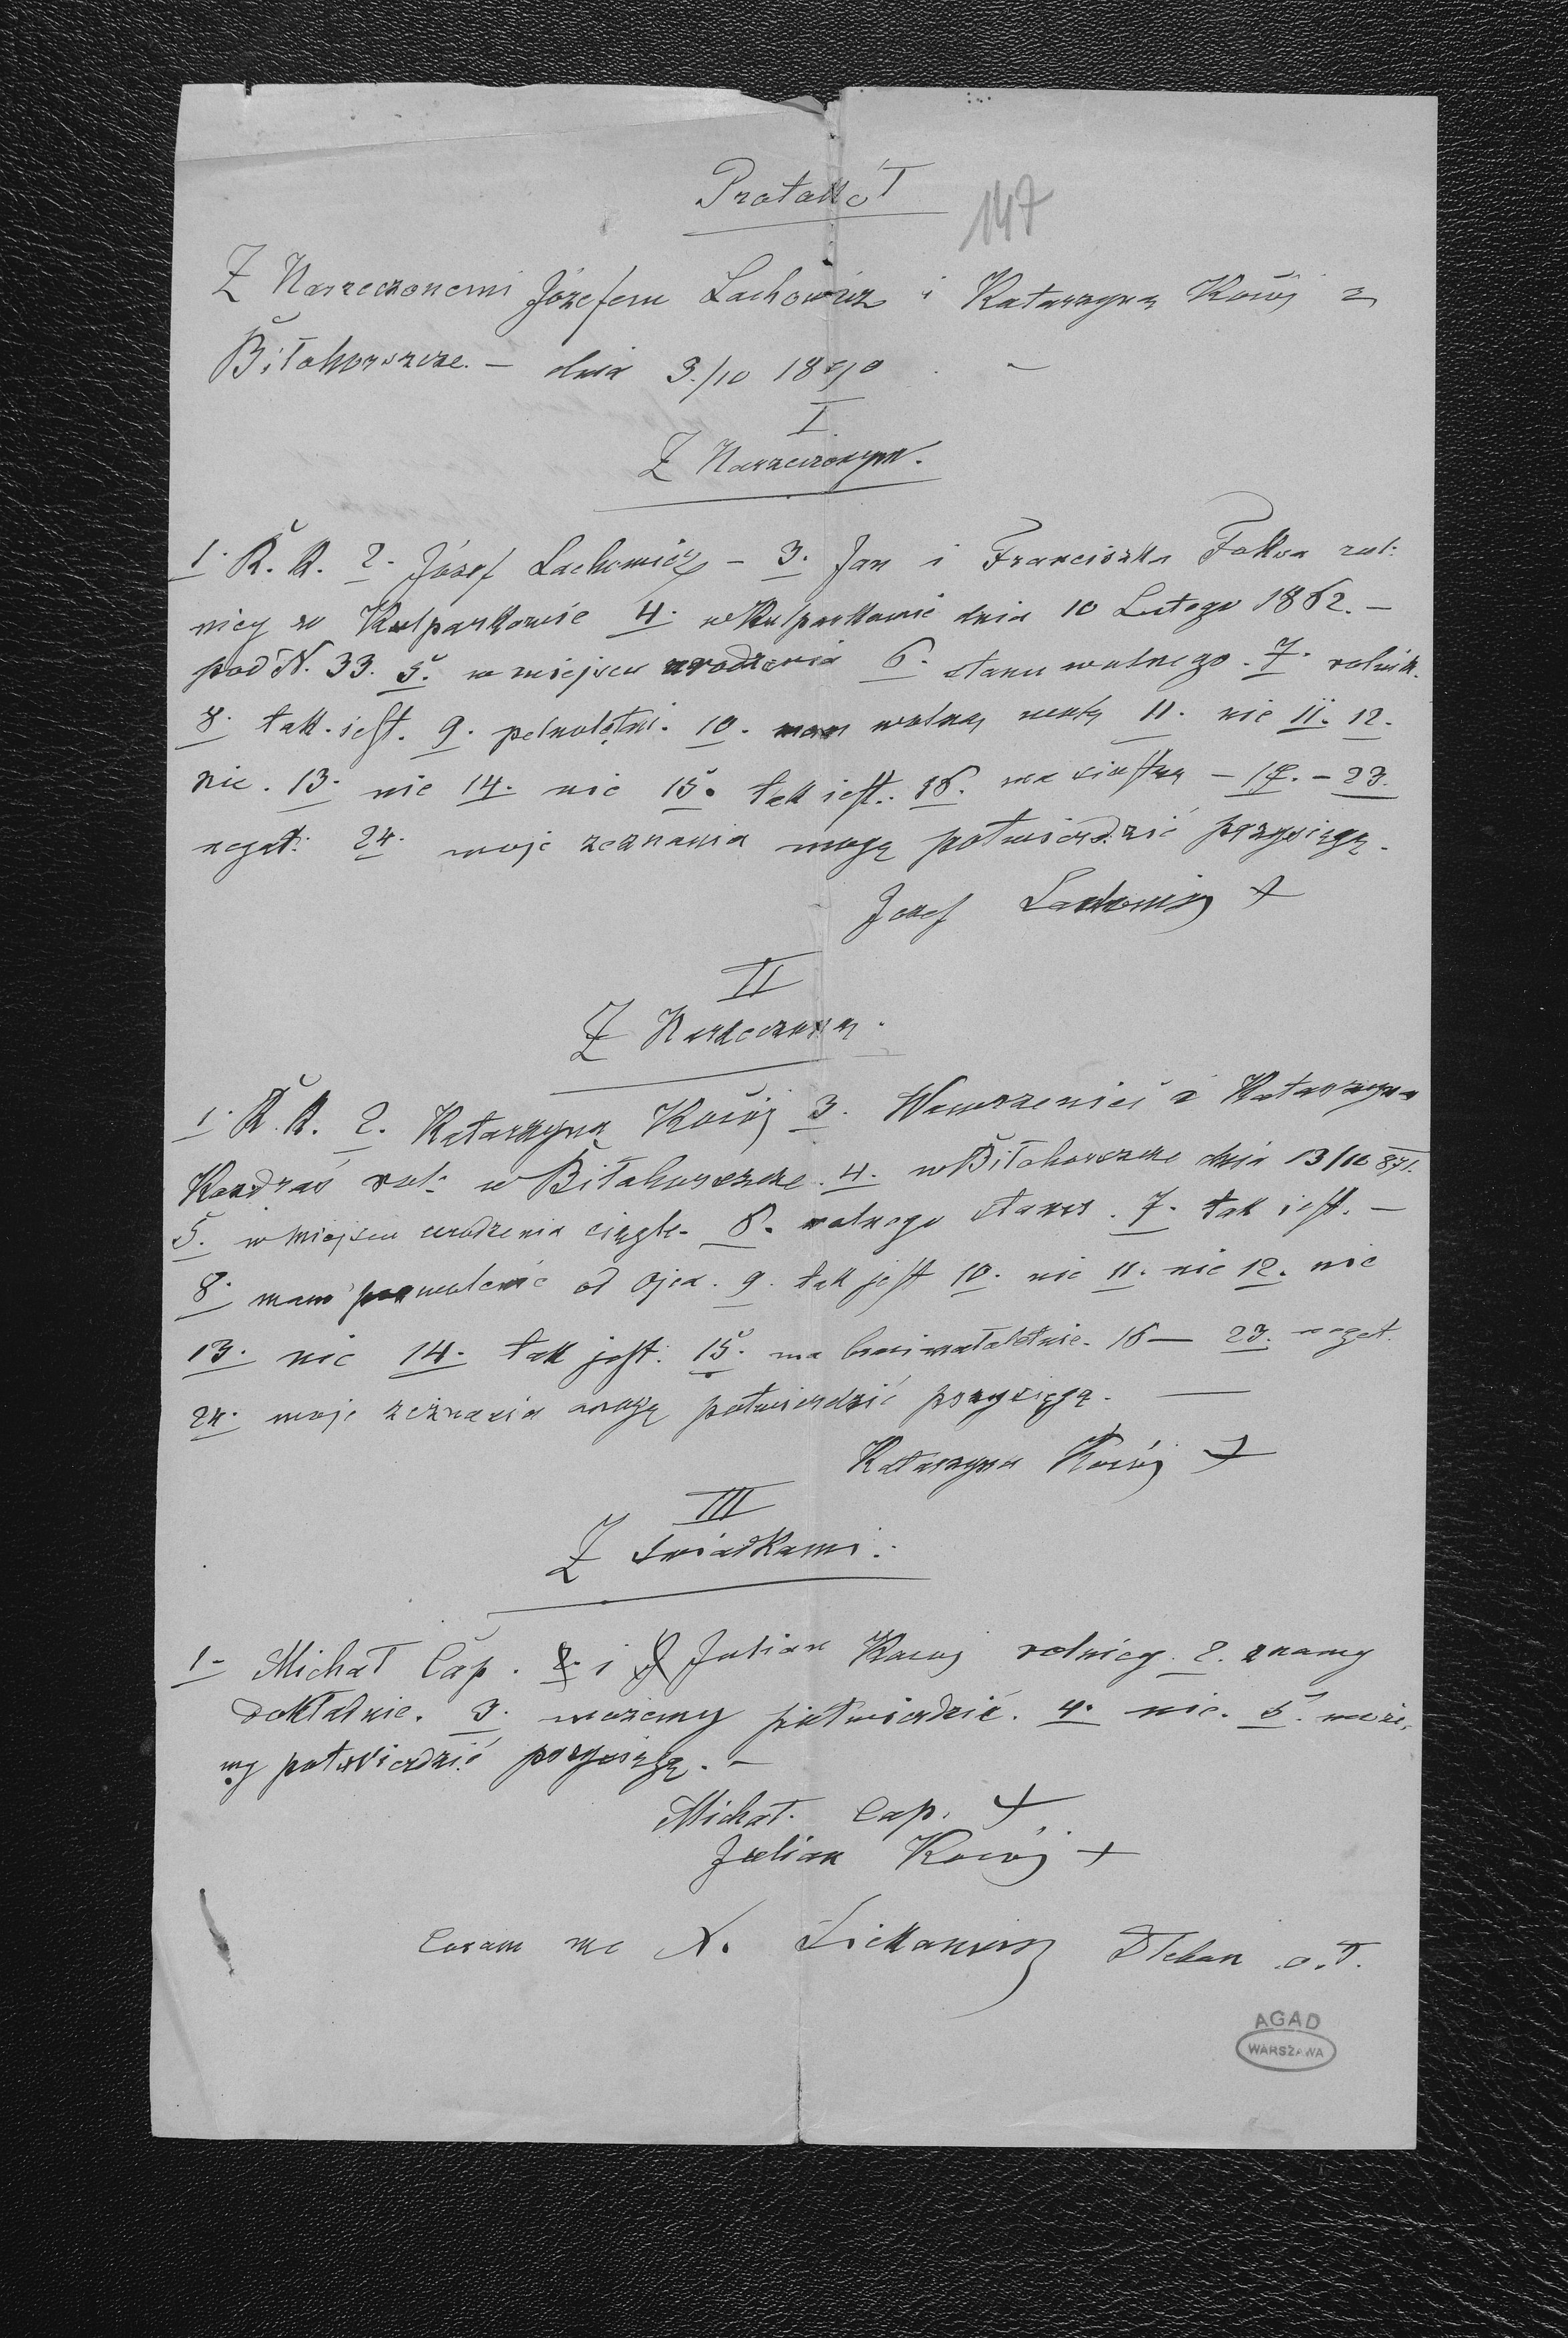 Protokół
147
Z Narzeczonemi Józefem Lachowicz i Katarzyną Kocój z
Biłohorszcze. — dnia 3./10 1890 —
I
Z Narzeczonym.
1. R. K. 2. Józef Lachowicz — 3. Jan i Franciszka Fokva rol:
nicy w Kulparkowie 4. w Kulparkowie dnia 10 Lutego 1862. —
pod N. 33. 5. w miejscu urodzenia 6. stanu wolnego. 7. rolnik.
8. tak jest. 9. pełnoletni. 10. mam wolną 11. nie 11. 12.
nie. 13. nie 14. nie 15. tak jest. 16. ma siostrę — 17. — 23.
negat: 24. moje zeznania mogę potwierdzić przysięgą.
Jozef Lachowicz +
II
Z Narzeczoną.
1. R. K. 2. Katarzyna Kocój 3. Wawrzeniec i Katarzyna
Kondraś rol: w Biłohorszcze. 4. w Biłohorszcze dnia 13/10 871.
5. w miejscu urodzenia ciągle. 6. wolnego stanu. 7. tak jest. —
8. mam pozwolenie od ojca. 9. tak jest 10. nie 11. nie 12. nie
13. nie 14. tak jest. 15. ma braci małoletnie. 16 — 23. negat.
24. moje zeznania mogę potwierdzić przysięgą. —
Katarzyna Kocój +
III
Z świadkami.
1. Michał Cap. i Julian Kocoj rolnicy. 2. znamy
dokładnie. 3. możemy potwierdzić. 4. nie. 5. może,
my potwierdzić przysięgą. —
Michał. Cap. +
Julian Kocój +
Coram me X. Pleban o. ł.
AGAD
WARSZAWA